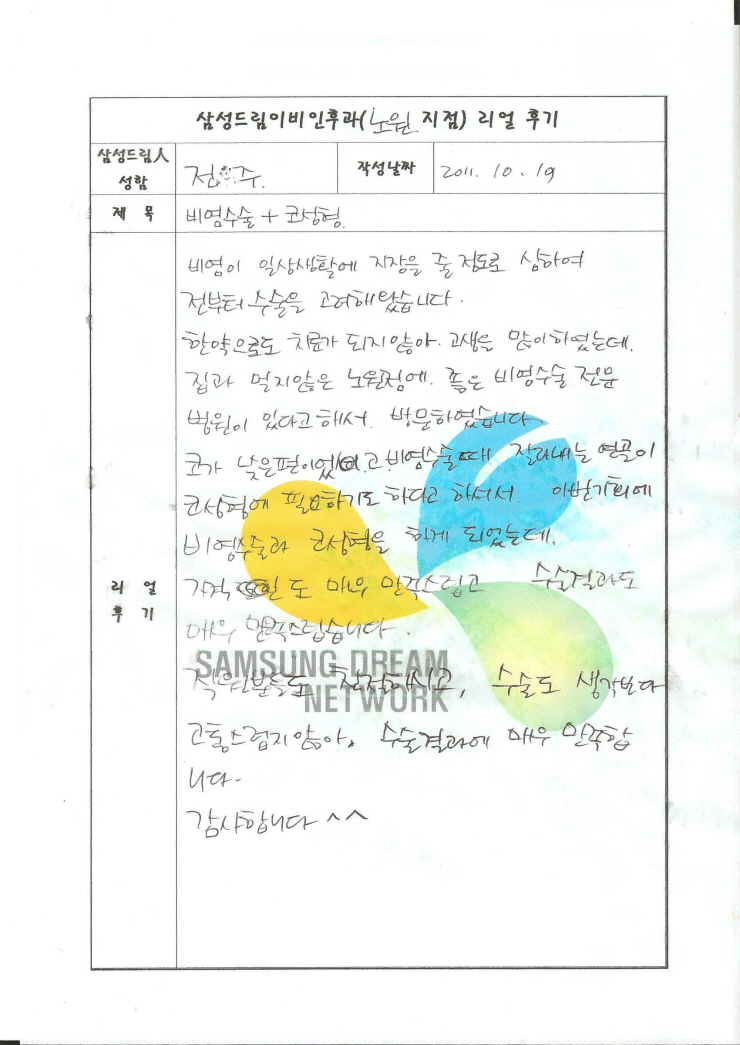 삼성드림이비인후과(노원 지점) 리얼 후기
삼성드림人
성함
정 주.
작성날짜
2011. 10. 19
제 목
비염수술 + 코성형
비염이 일상생활에 지장을 줄 정도로 심하여
전부터 수술을 고려해왔습니다.
한약으로도 치료가 되지않아. 고생을 많이하였는데.
집과 멀지않은 노원점에. 좋은 비염수술 전문
병원이 있다고해서. 방문하였습니다.
코가 낮은편이었고 비염수술때 잘라내는 연골이
코성형에 필요하기도 하다고 하셔서 이번기회에
비염수술과 코성형을 하게 되었는데.
가격 도 매우 만족스럽고 수술결과도
매우 만족스럽습니다.
리 얼
후 기
SAMSUNG DREAM
NETWORK
직원분들도 친절하시고, 수술도 생각보다
고통스럽지않아, 수술결과에 매우 만족합
니다.
감사합니다 ^^